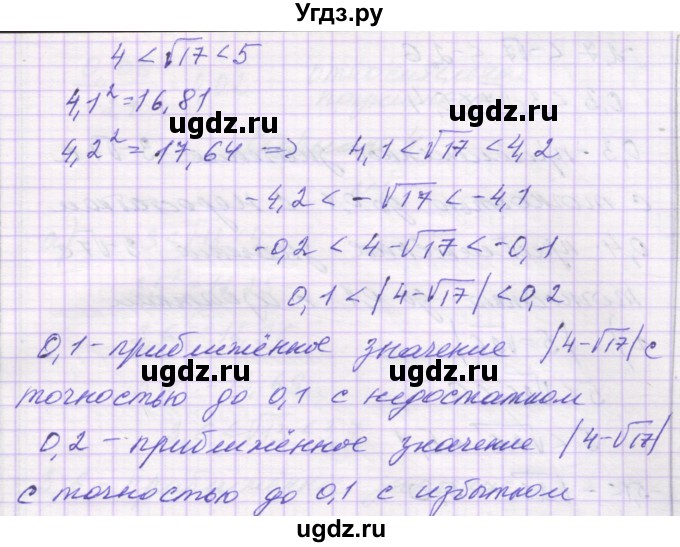 Угдз.ру
4 < √17 < 5
4,1² = 16,81
ugdz.ru ugdz.ru
4,2² = 17,64 => 4,1 < √17 < 4,2
-4,2 < -√17 < -4,1
-0,2 < 4-√17 < -0,1
0,1 < |4-√17| < 0,2
0,1 - приближённое значение |4-√17| с
ugdz.ru ugdz.ru
точностью до 0,1 с недостатком
0,2 - приближённое значение |4-√17|
с точностью до 0,1 с избытком
ugdz.ru ugdz.ru